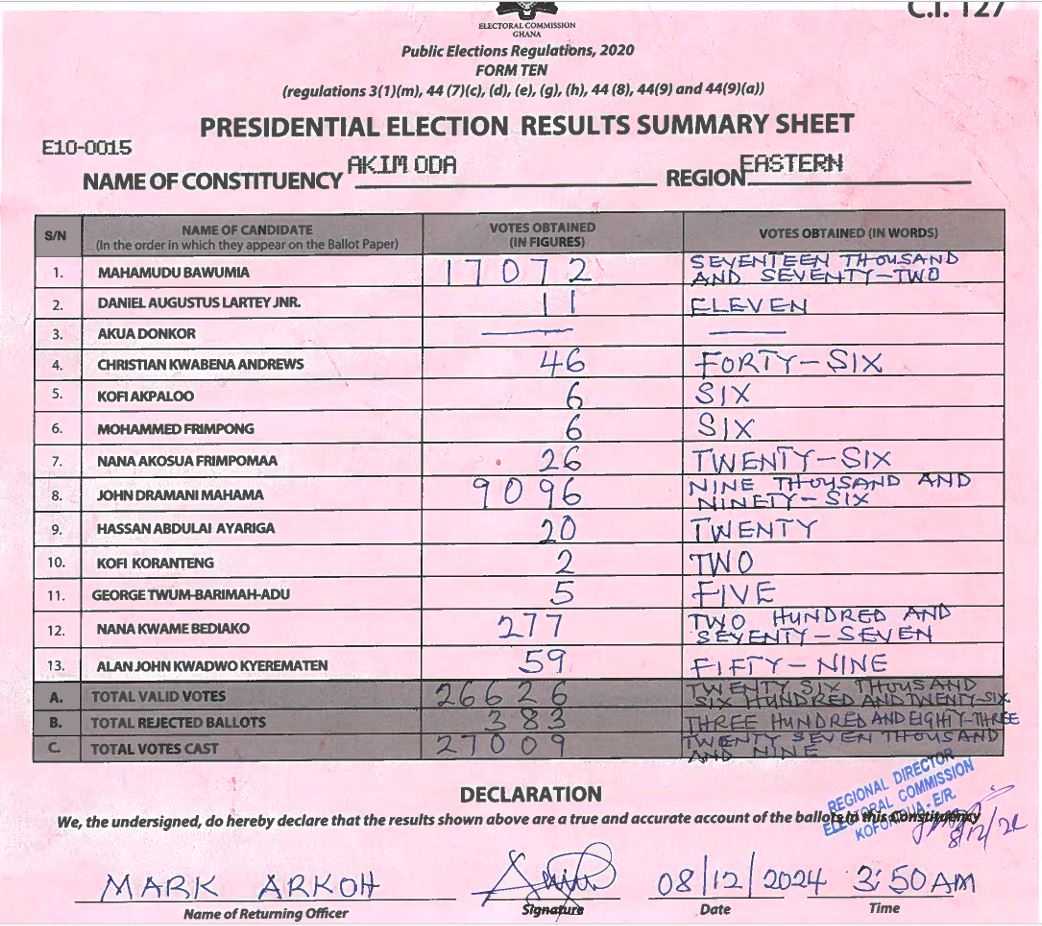 C.I. 127
ELECTORAL COMMISSION
GHANA
Public Elections Regulations, 2020
FORM TEN
(regulations 3(1)(m), 44 (7)(c), (d), (e), (g), (h), 44 (8), 44(9) and 44(9)(a))
PRESIDENTIAL ELECTION RESULTS SUMMARY SHEET
E10-0015
NAME OF CONSTITUENCY AKIM ODA REGION EASTERN
S/N NAME OF CANDIDATE (In the order in which they appear on the Ballot Paper) VOTES OBTAINED (IN FIGURES) VOTES OBTAINED (IN WORDS)
1. MAHAMUDU BAWUMIA 17072 SEVENTEEN THOUSAND AND SEVENTY-TWO
2. DANIEL AUGUSTUS LARTEY JNR. 11 ELEVEN
3. AKUA DONKOR — —
4. CHRISTIAN KWABENA ANDREWS 46 FORTY-SIX
5. KOFI AKPALOO 6 SIX
6. MOHAMMED FRIMPONG 6 SIX
7. NANA AKOSUA FRIMPOMAA 26 TWENTY-SIX
8. JOHN DRAMANI MAHAMA 9096 NINE THOUSAND AND NINETY-SIX
9. HASSAN ABDULAI AYARIGA 20 TWENTY
10. KOFI KORANTENG 2 TWO
11. GEORGE TWUM-BARIMAH-ADU 5 FIVE
12. NANA KWAME BEDIAKO 277 TWO HUNDRED AND SEVENTY-SEVEN
13. ALAN JOHN KWADWO KYEREMATEN 59 FIFTY-NINE
A. TOTAL VALID VOTES 26626 TWENTY SIX THOUSAND SIX HUNDRED AND TWENTY-SIX
B. TOTAL REJECTED BALLOTS 383 THREE HUNDRED AND EIGHTY-THREE
C. TOTAL VOTES CAST 27009 TWENTY SEVEN THOUSAND AND NINE
DECLARATION
We, the undersigned, do hereby declare that the results shown above are a true and accurate account of the ballots in this Constituency
REGIONAL DIRECTOR
ELECTORAL COMMISSION
KOFORIDUA - E/R.
8/12/24
MARK ARKOH 08/12/2024 3:50AM
Name of Returning Officer Signature Date Time